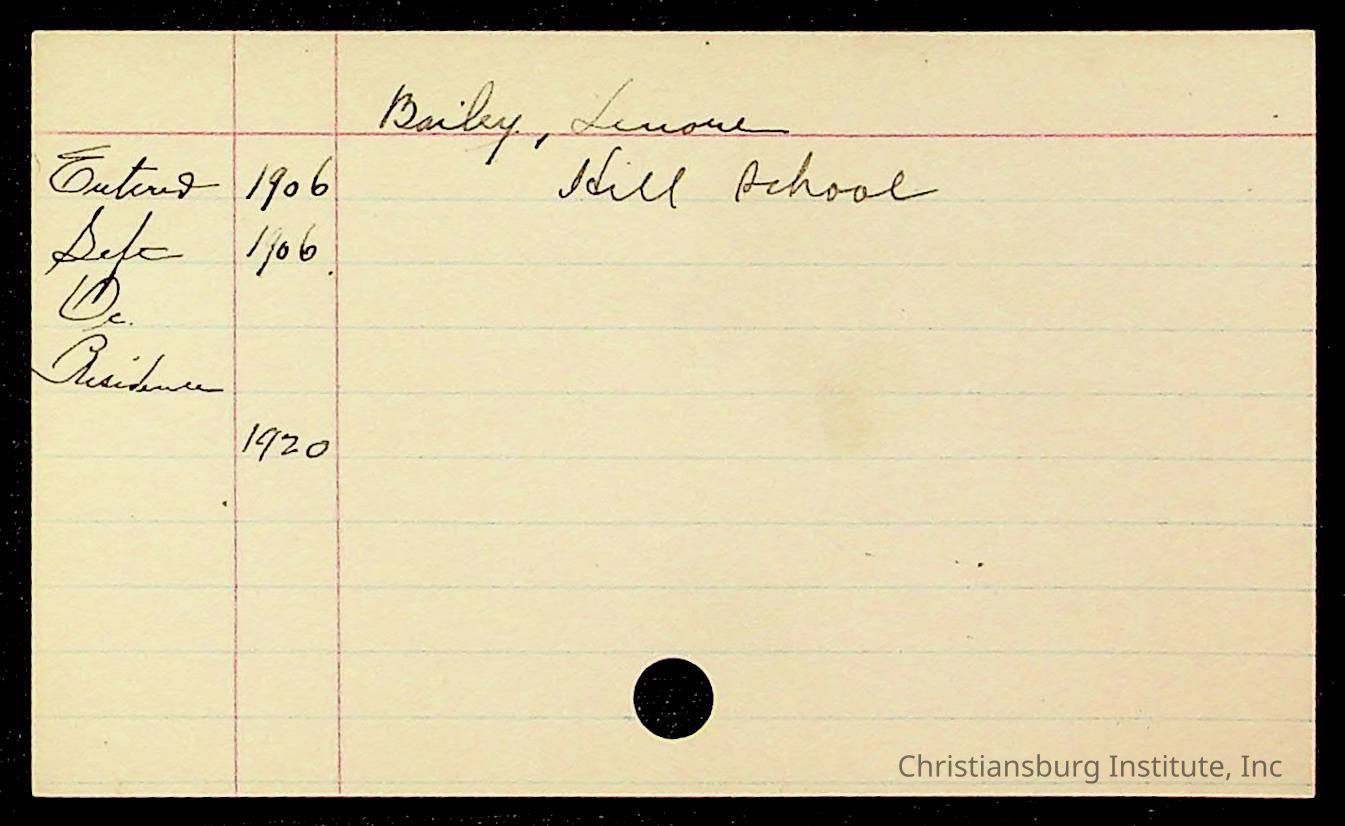 Bailey, Lenore
Entered 1906 Hill School
Left 1906.
Oc.
Residence
1920
Christiansburg Institute, Inc